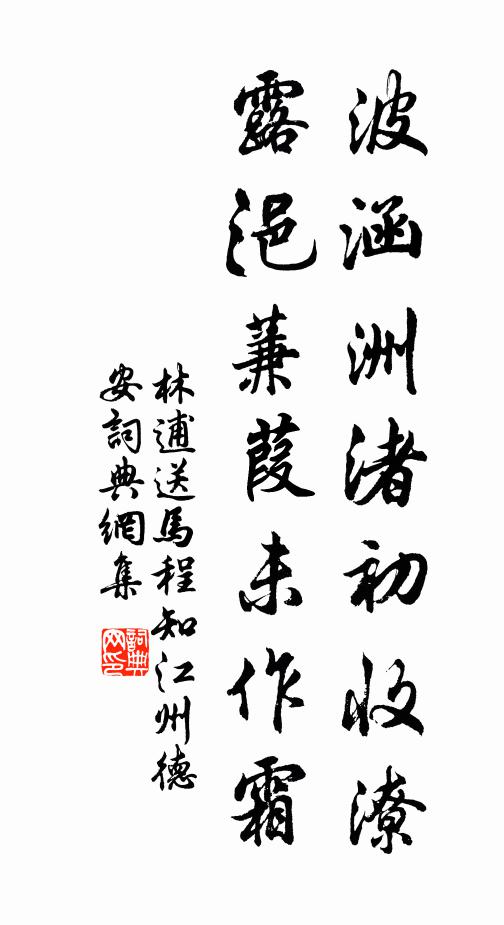 波涵洲渚初收潦
露浥蒹葭未作霜
林逋送馬程知江州德
安詞典網集
詞典网印